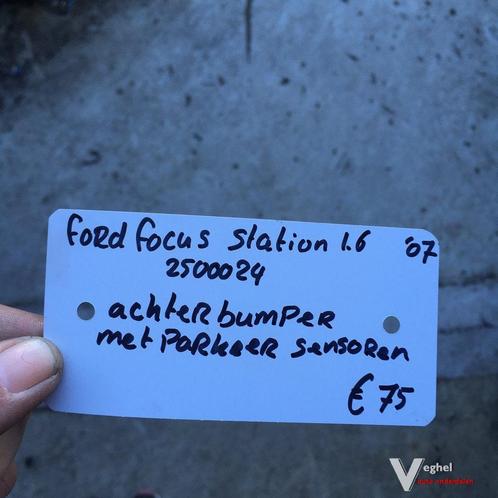 Ford Focus Station 1.6 '07
2500024
achterbumper
met parkeer sensoren
€ 75
Veghel
auto onderdelen